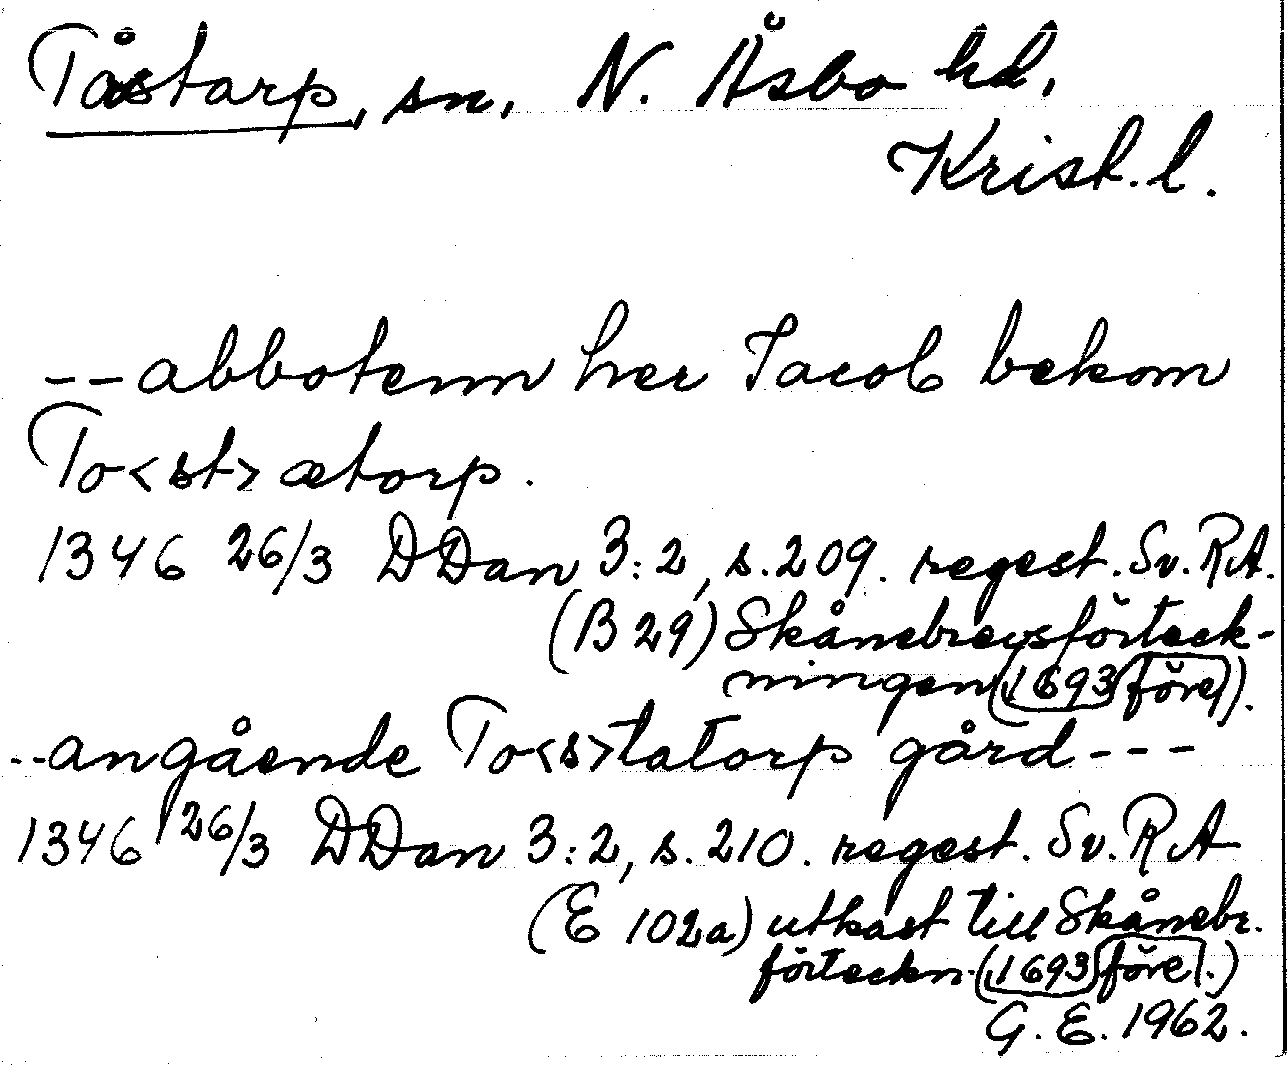 Tåstarp, sn, N. Åsbo hd,
Krist. l.
--abbotenn her Jacob bekom
To<st>ætorp.
1346 26/3 DDan 3:2, s. 209. regest. Sv. RA.
(B 29) Skånebrevsförteck-
ningen (1693 före).
--angående To<s>tatorp gård---
1346 26/3 DDan 3:2, s. 210. regest. Sv. RA
(E 102a) utkast till Skånebr.
förteckn. (1693 före.)
G. E. 1962.